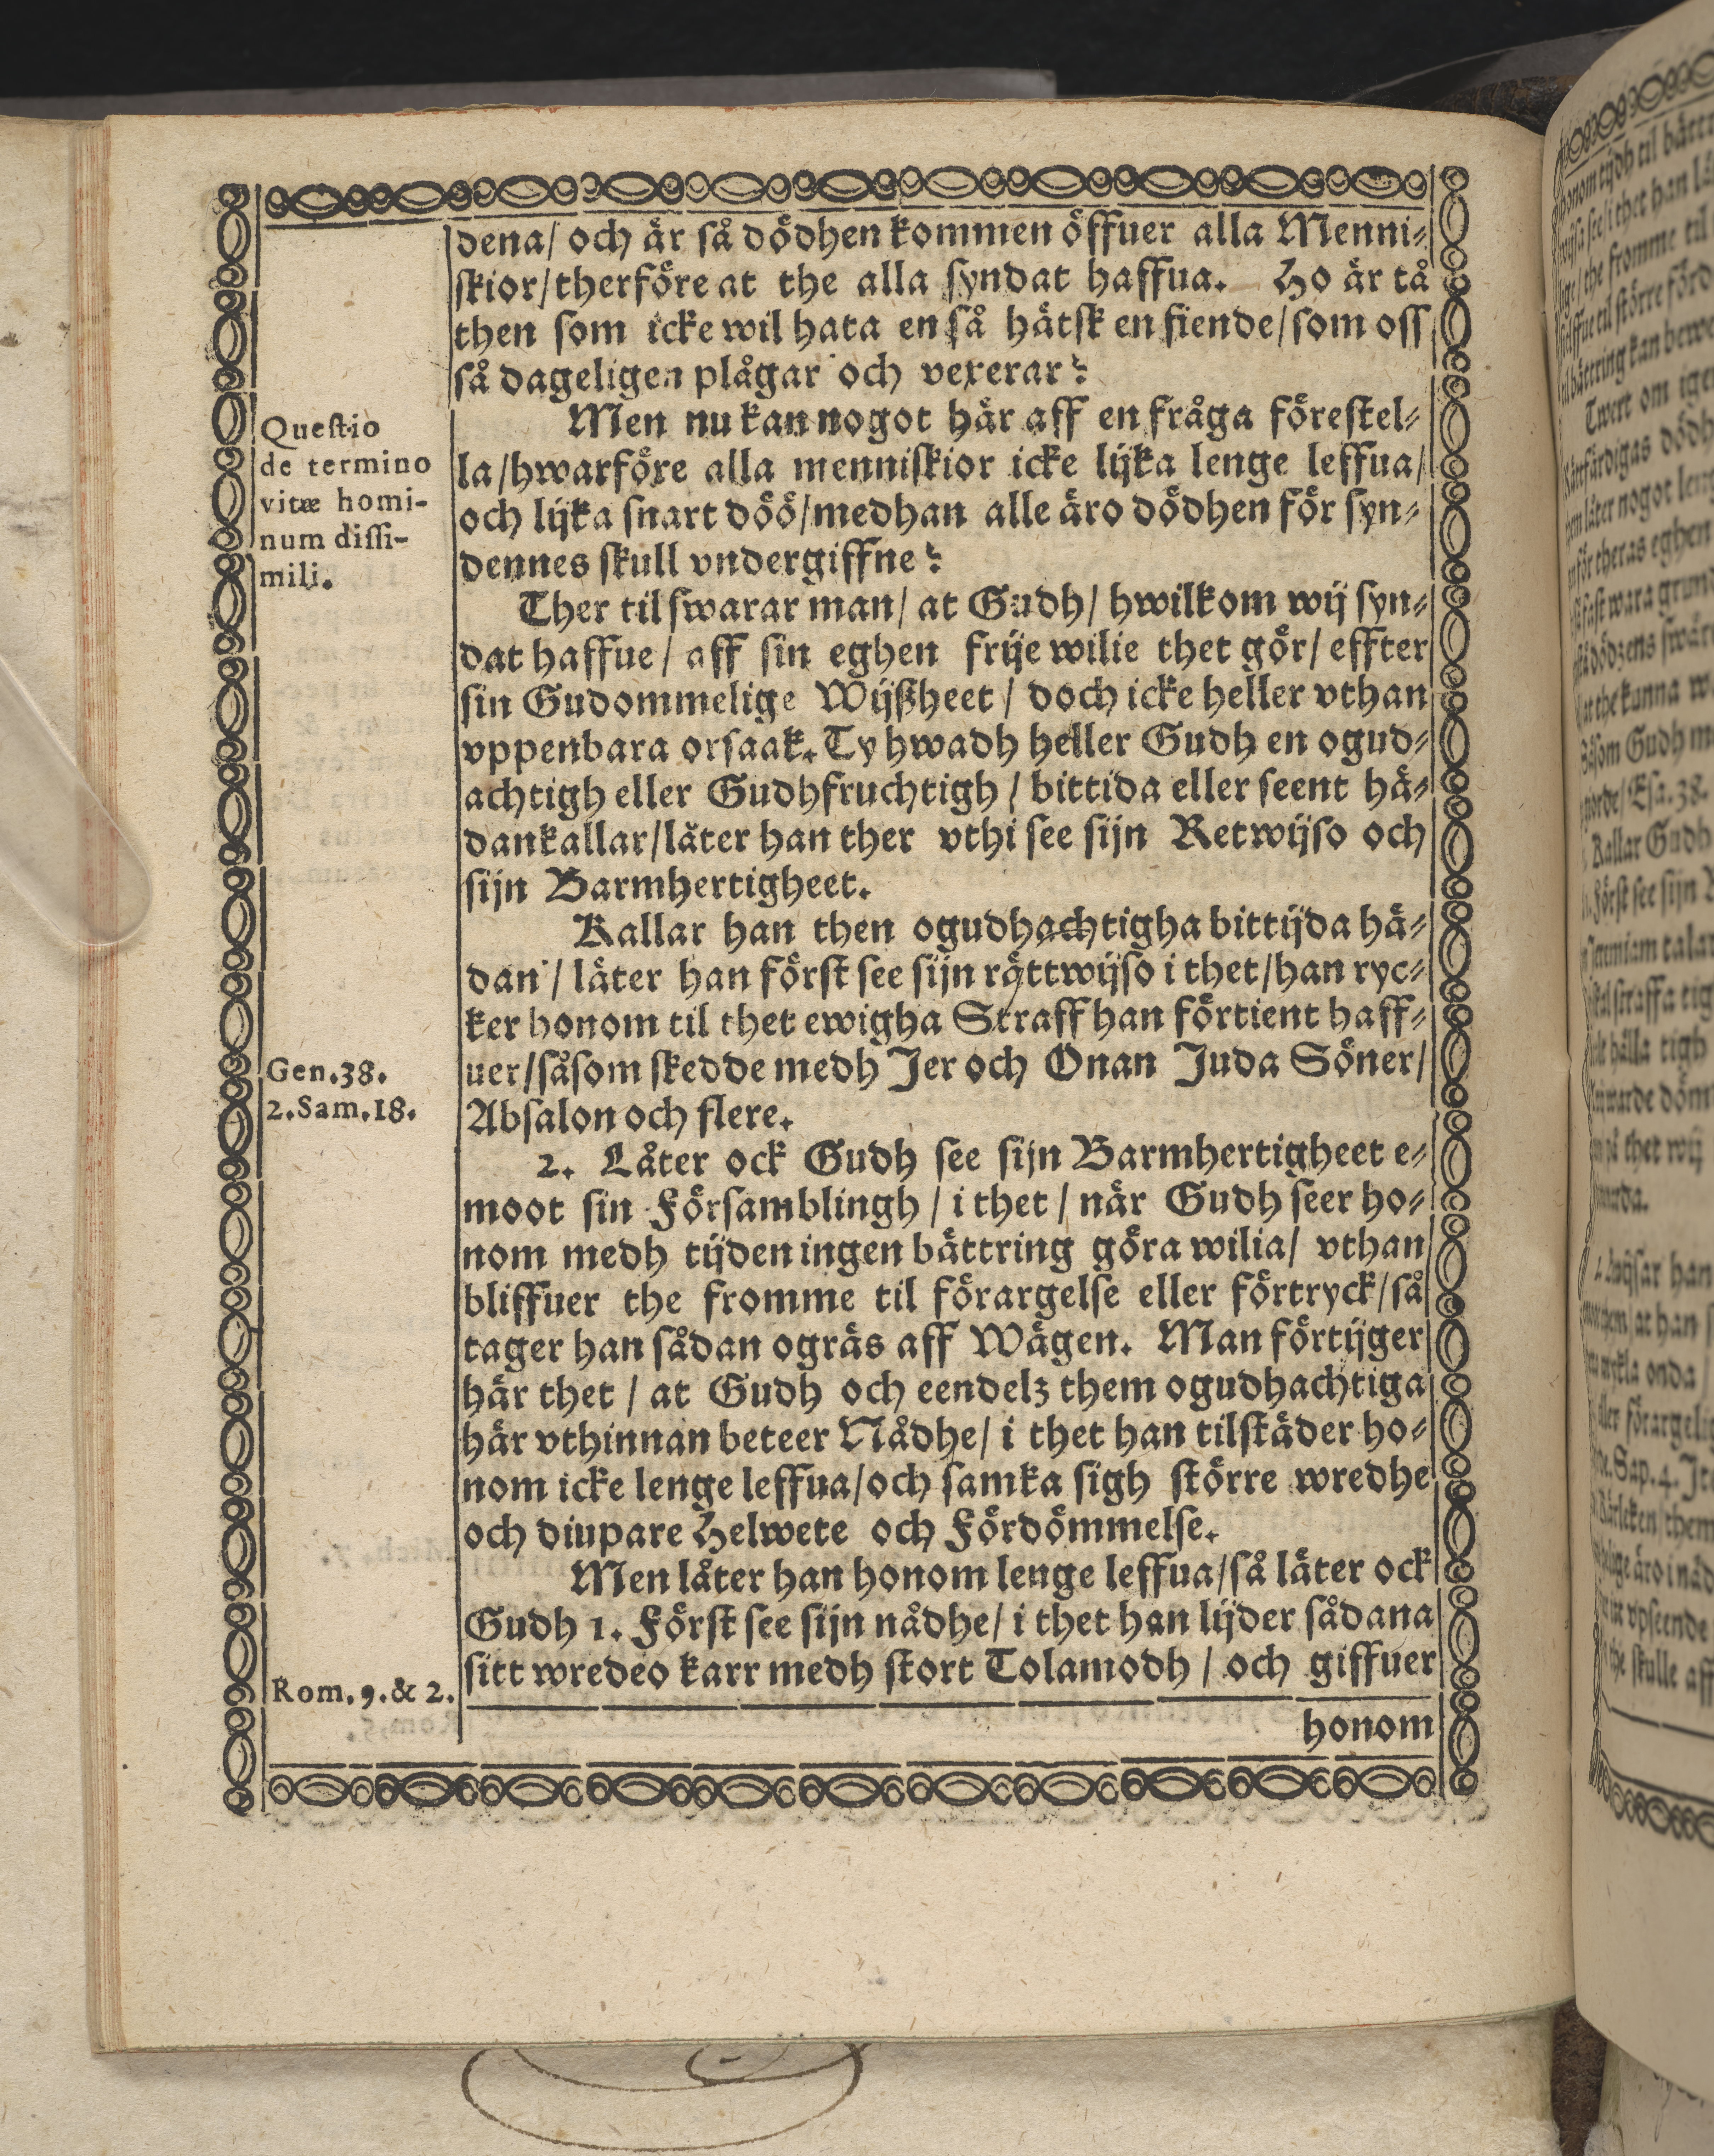 dena/ och är så dödhen kommen öffuer alla Menni-
skior/therföre at the alla syndat haffua. Ho är tå
then som icke wil hata en så hätsk en fiende/som oss
så dageligen plågar och vexerar?
Questio
de termino
vitæ homi-
num dissi-
mili.
Men nu kan nogot här aff en fråga förestel-
la/hwarföre alla menniskior icke lijka lenge leffua/
och lijka snart döö/medhan alle äro dödhen för syn-
dennes skull vndergiffne?
Ther til swarar man/ at Gudh/ hwilkom wij syn-
dat haffue/ aff sin eghen frije wilie thet gör/ effter
sin Gudommelige Wijßheet/ doch icke heller vthan
vppenbara orsaak. Ty hwadh heller Gudh en ogud-
achtigh eller Gudhfruchtigh/ bittida eller seent hä-
dankallar/läter han ther vthi see sijn Retwijso och
sijn Barmhertigheet.
Kallar han then ogudhachtigha bittijda hä-
dan/ läter han först see sijn rättwijso i thet/han ryc-
ker honom til thet ewigha Straff han förtient haff-
Gen.38.
2.Sam.18.
uer/såsom skedde medh Jer och Onan Juda Söner/
Absalon och flere.
2. Låter ock Gudh see sijn Barmhertigheet e-
moot sin Församblingh/ i thet/ när Gudh seer ho-
nom medh tijden ingen bättring göra wilia/ vthan
bliffuer the fromme til förargelse eller förtryck/så
tager han sådan ogräs aff Wägen. Man förtijger
här thet/ at Gudh och eendelz them ogudhachtiga
här vthinnan beteer Nådhe/ i thet han tilstäder ho-
nom icke lenge leffua/och samka sigh större wredhe
och diupare Helwete och Fördömmelse.
Men låter han honom lenge leffua/så läter ock
Gudh 1. Först see sijn nådhe/ i thet han lijder sådana
Rom. 9. & 2.
sitt wredeo karr medh stort Tolamodh/ och giffuer
honom